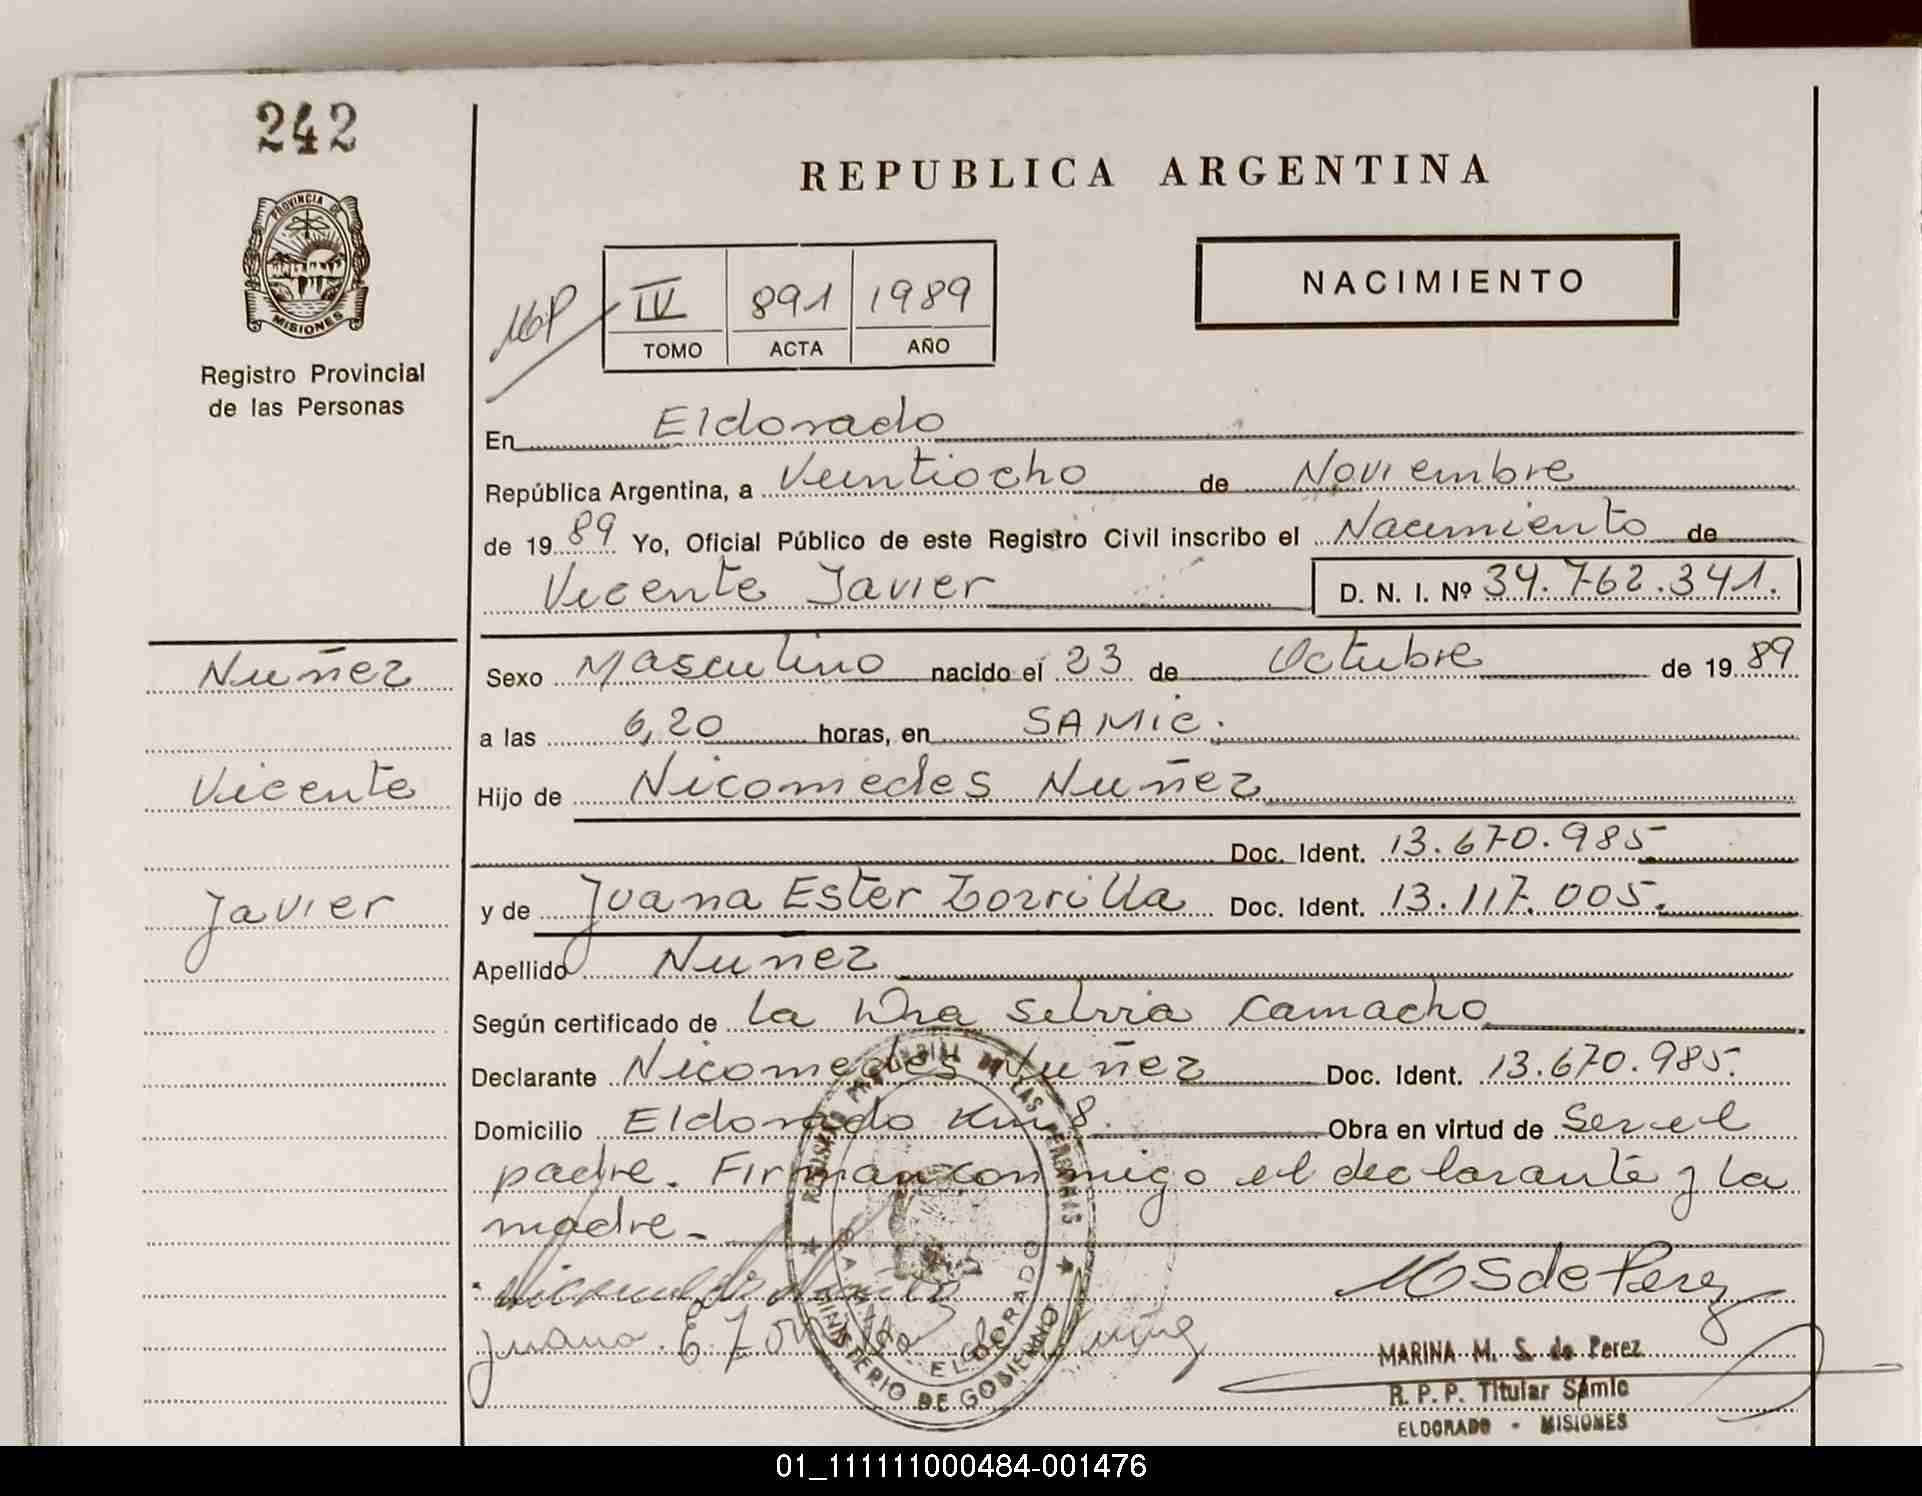 242
REPUBLICA ARGENTINA
PROVINCIA DE
MISIONES
Registro Provincial
de las Personas
IV 891 1989
TOMO ACTA AÑO
NACIMIENTO
En Eldorado
República Argentina, a Veintiocho de Noviembre
de 1989 Yo, Oficial Público de este Registro Civil inscribo el Nacimiento de
Vicente Javier D. N. I. Nº 34.762.341.
Nuñez
Vicente
Javier
Sexo Masculino nacido el 23 de Octubre de 1989
a las 6,20 horas, en SAMIC.
Hijo de Nicomedes Nuñez
Doc. Ident. 13.670.985
y de Juana Ester Zorrilla Doc. Ident. 13.117.005.
Apellido Nuñez
Según certificado de la Dra Silvia Camacho
Declarante Nicomedes Nuñez Doc. Ident. 13.670.985.
Domicilio Eldorado Km 8. Obra en virtud de ser el
padre. Firman conmigo el declarante y la
madre.-
REGISTRO PROVINCIAL DE LAS PERSONAS
MINISTERIO DE GOBIERNO
ELDORADO
MS de Perez
Juana E. Zorrilla de Nuñez
MARINA M. S. de Perez
R. P. P. Titular Samic
ELDORADO - MISIONES
01_111111000484-001476